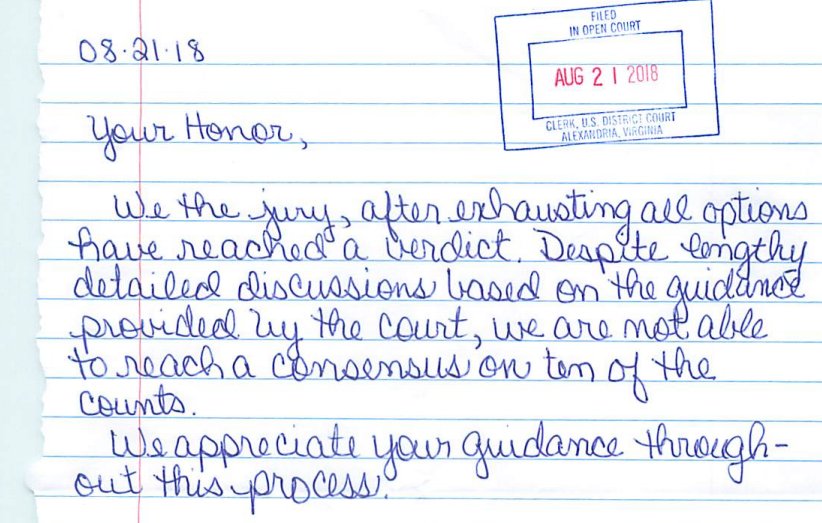 08·21·18
FILED
IN OPEN COURT
AUG 21 2018
CLERK, U.S. DISTRICT COURT
ALEXANDRIA, VIRGINIA
Your Honor,
We the jury, after exhausting all options
have reached a verdict. Despite lengthy
detailed discussions based on the guidance
provided by the court, we are not able
to reach a consensus on ten of the
counts.
We appreciate your guidance through-
out this process.